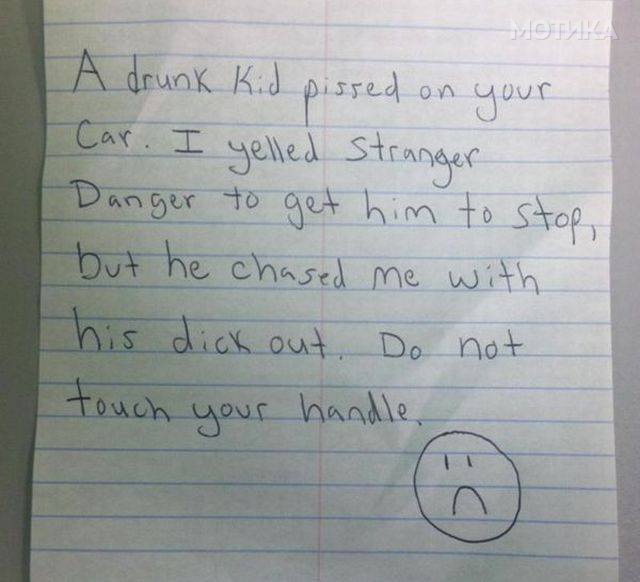 МОТИКА
A drunk kid pissed on your
Car. I yelled Stranger
Danger to get him to stop,
but he chased me with
his dick out. Do not
touch your handle.